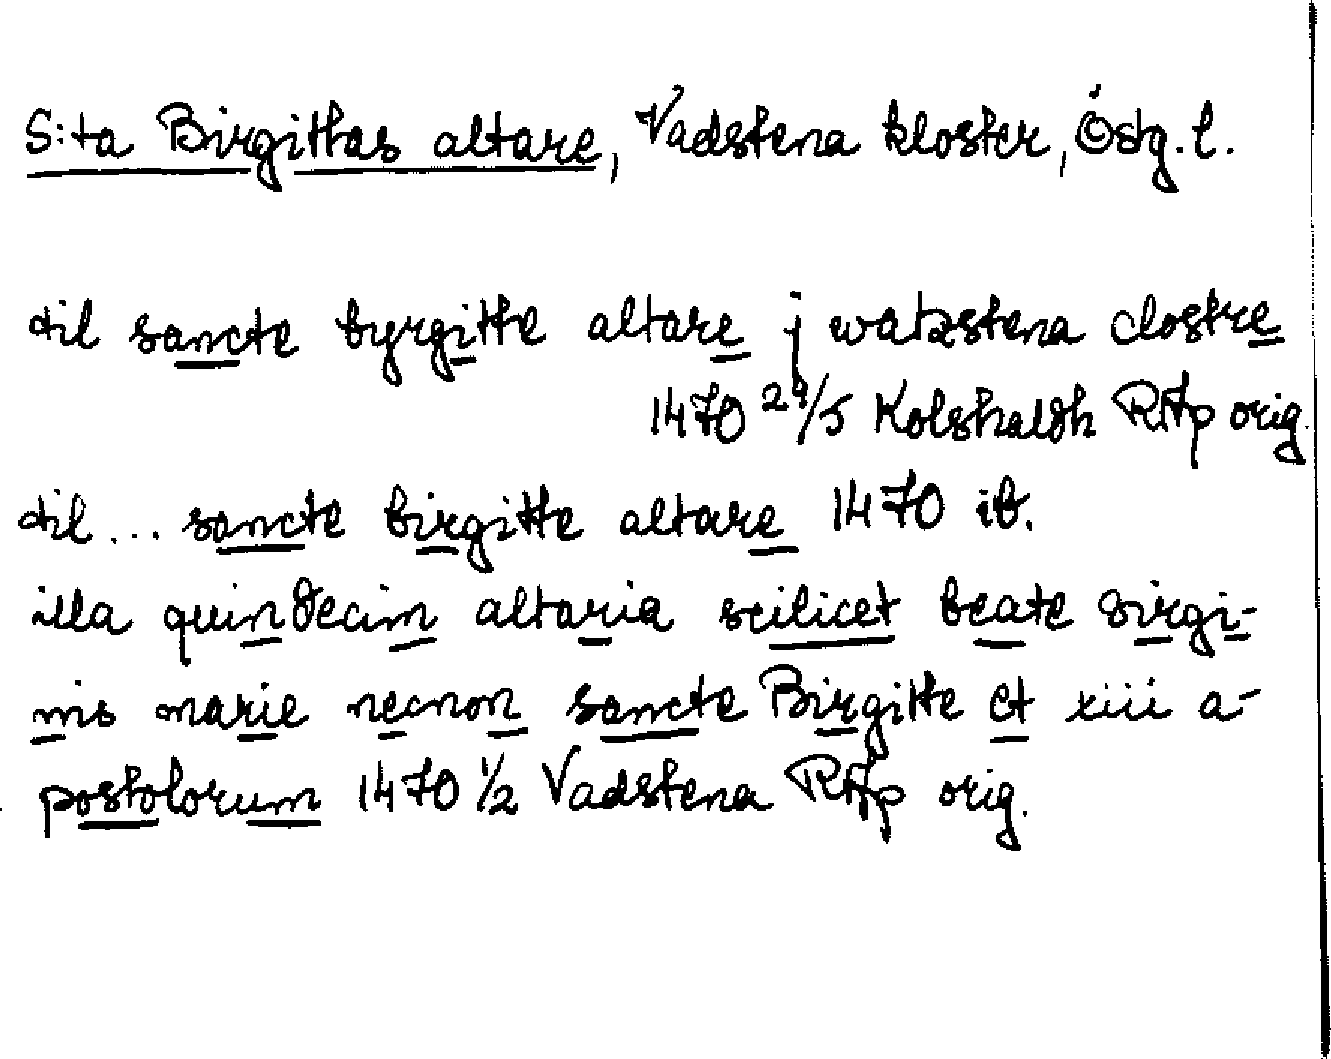 S:ta Birgittas altare, Vadstena kloster, Östg. l.
til sancte byrgitte altare j watzstena clostre
1470 29/5 Kolshaldh RAp orig.
til... sancte birgitte altare 1470 ib.
illa quindecim altaria scilicet beate virgi-
nis marie necnon sancte Birgitte et xiii a-
postolorum 1470 1/2 Vadstena RAp orig.